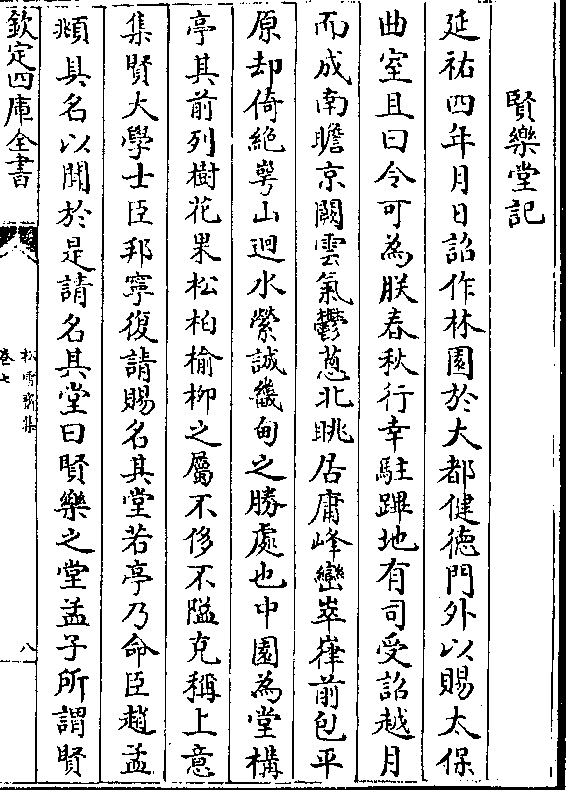 賢樂堂記
延祐四年月日詔作林園於大都健徳門外以賜太保
曲室且曰令可為朕春秋行幸駐蹕地有司受詔越月
而成南瞻京闕雲氣鬱葱北眺居庸峰巒崒嵂前包平
原却倚絶㟧山迴水縈誠畿甸之勝處也中園為堂構
亭其前列樹花果松柏榆柳之屬不侈不隘克稱上意
集賢大學士臣邦寧復請賜名其堂若亭乃命臣趙孟
頫具名以聞於是請名其堂曰賢樂之堂孟子所謂賢
欽定四庫全書
松雪齋集
卷七
八